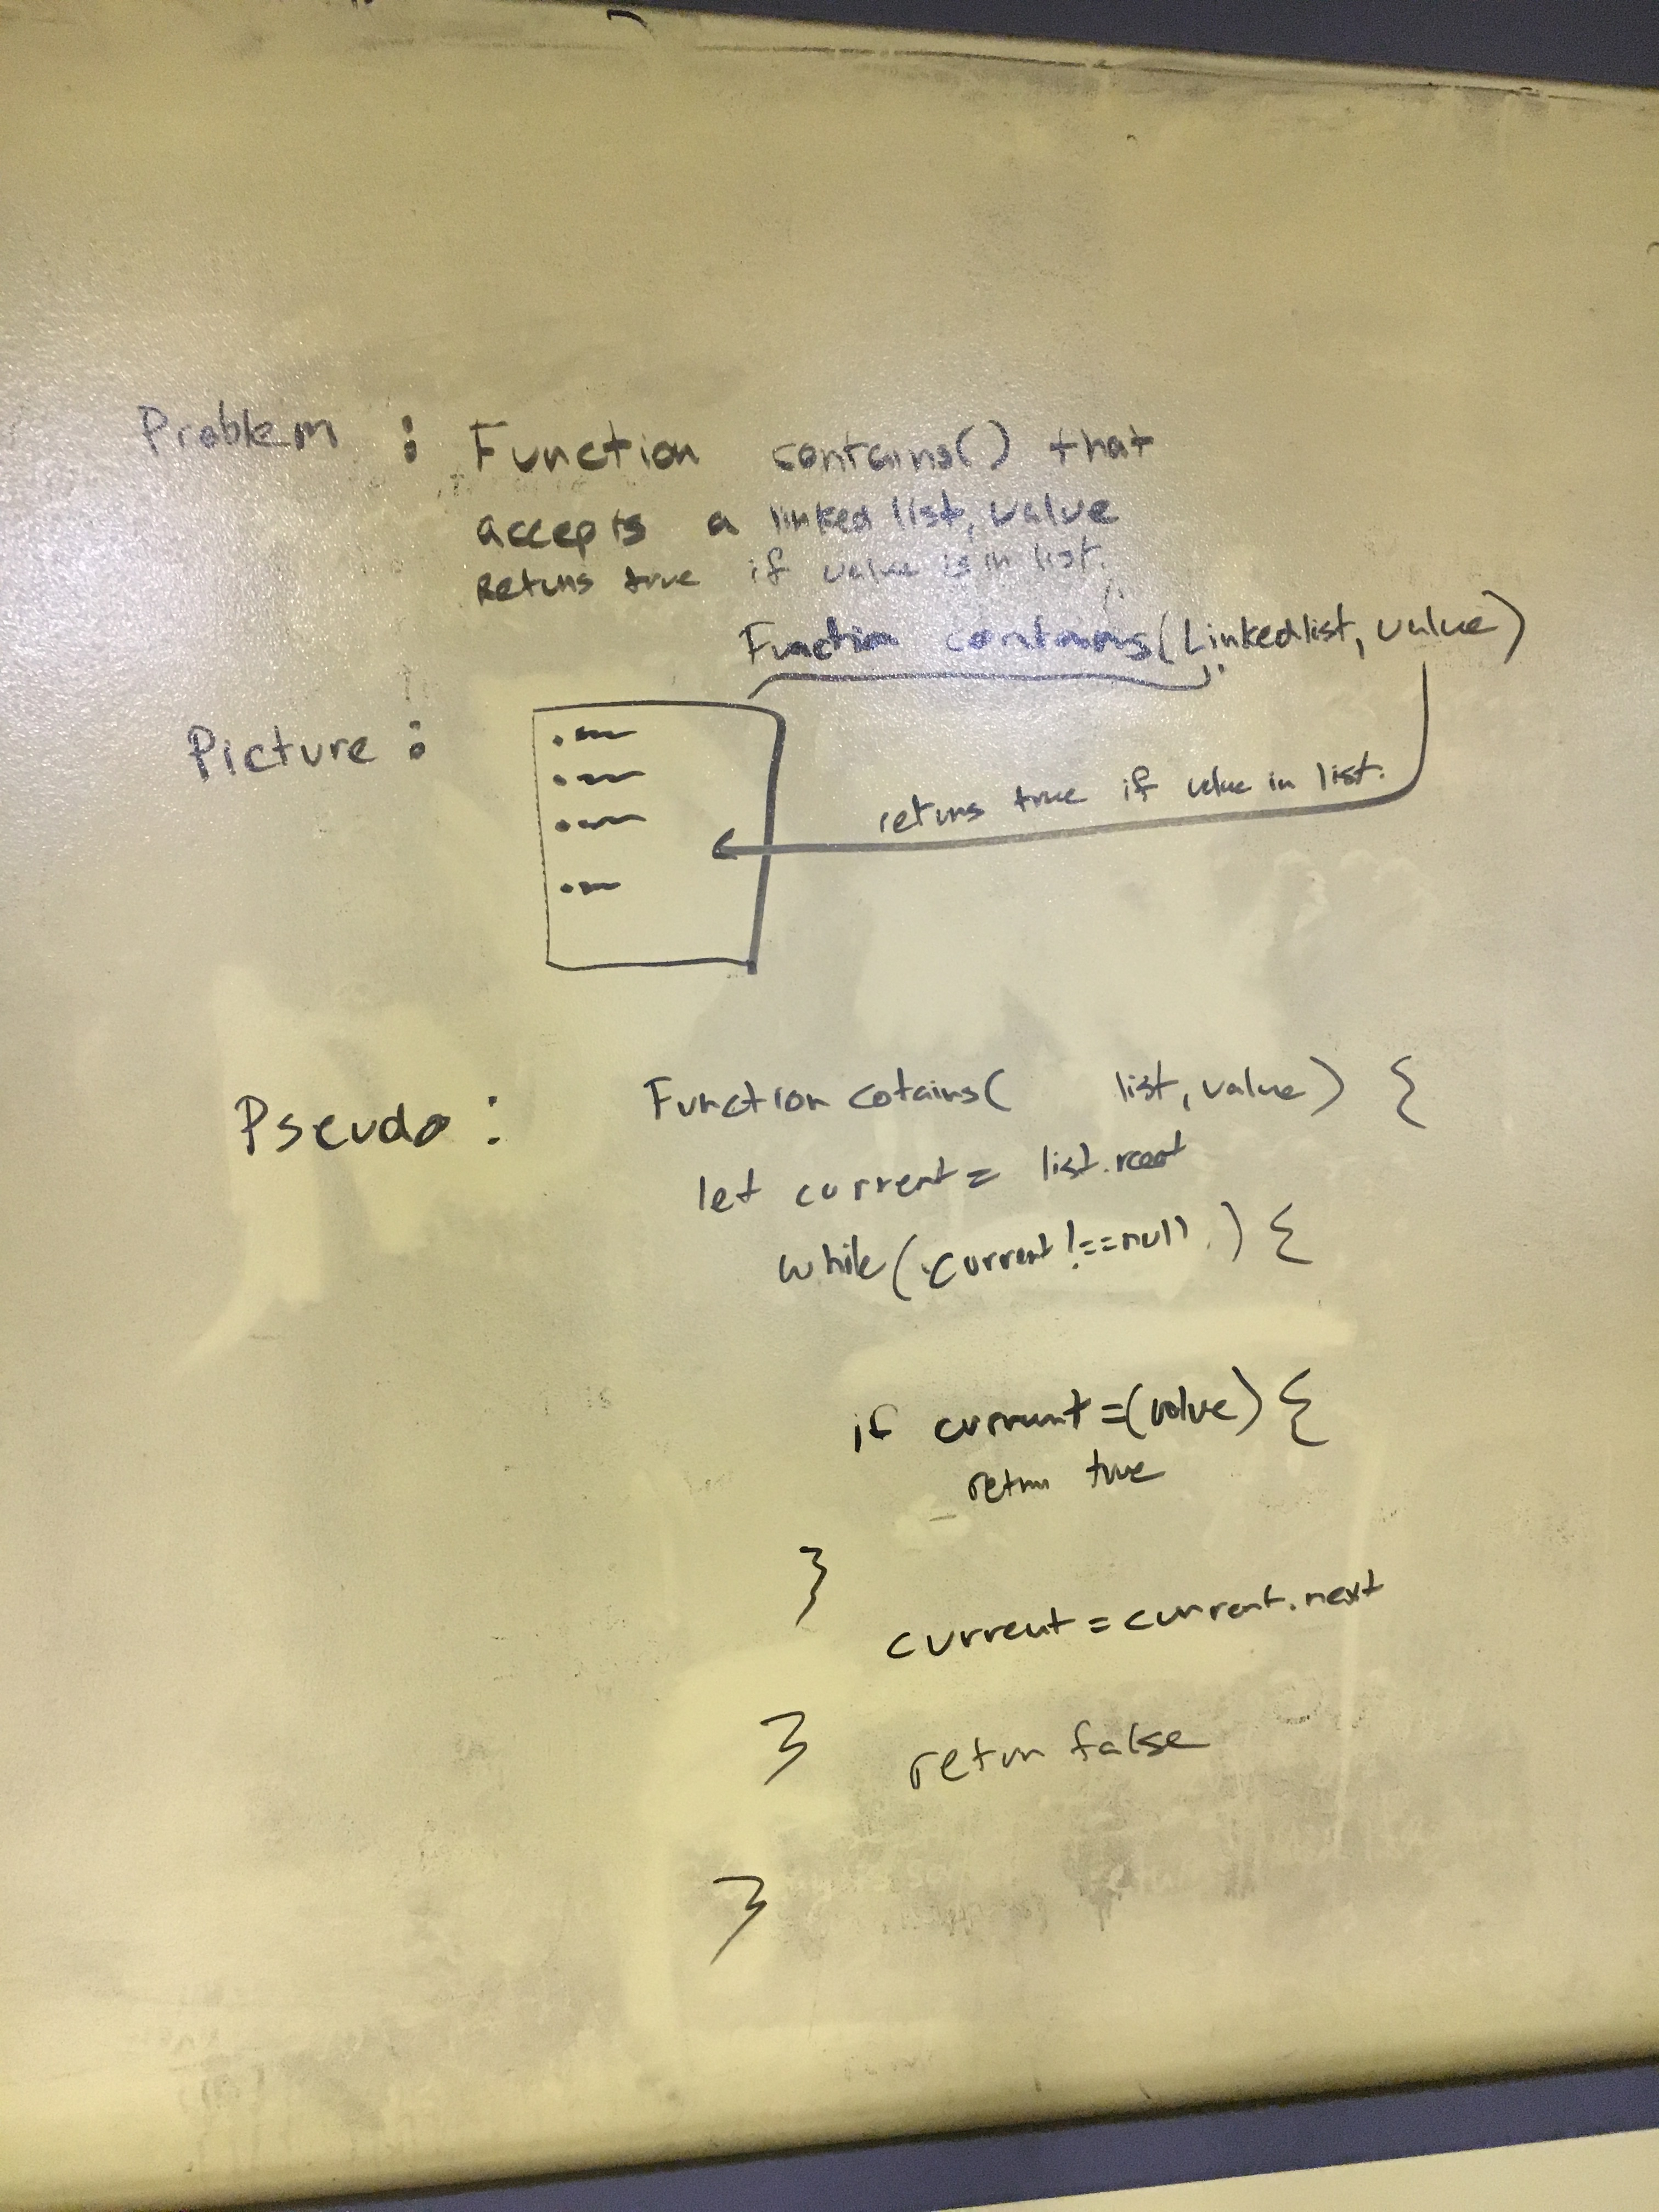 Problem : Function contains() that
accepts a linked list, value
Returns true if value is in list.
Function contains(Linkedlist, value)
Picture :
returns true if value in list.
Pseudo : Function cotains( list, value) {
let current = list.root
while (current !== null ) {
if current = (value) {
return true
}
current = current.next
} return false
}